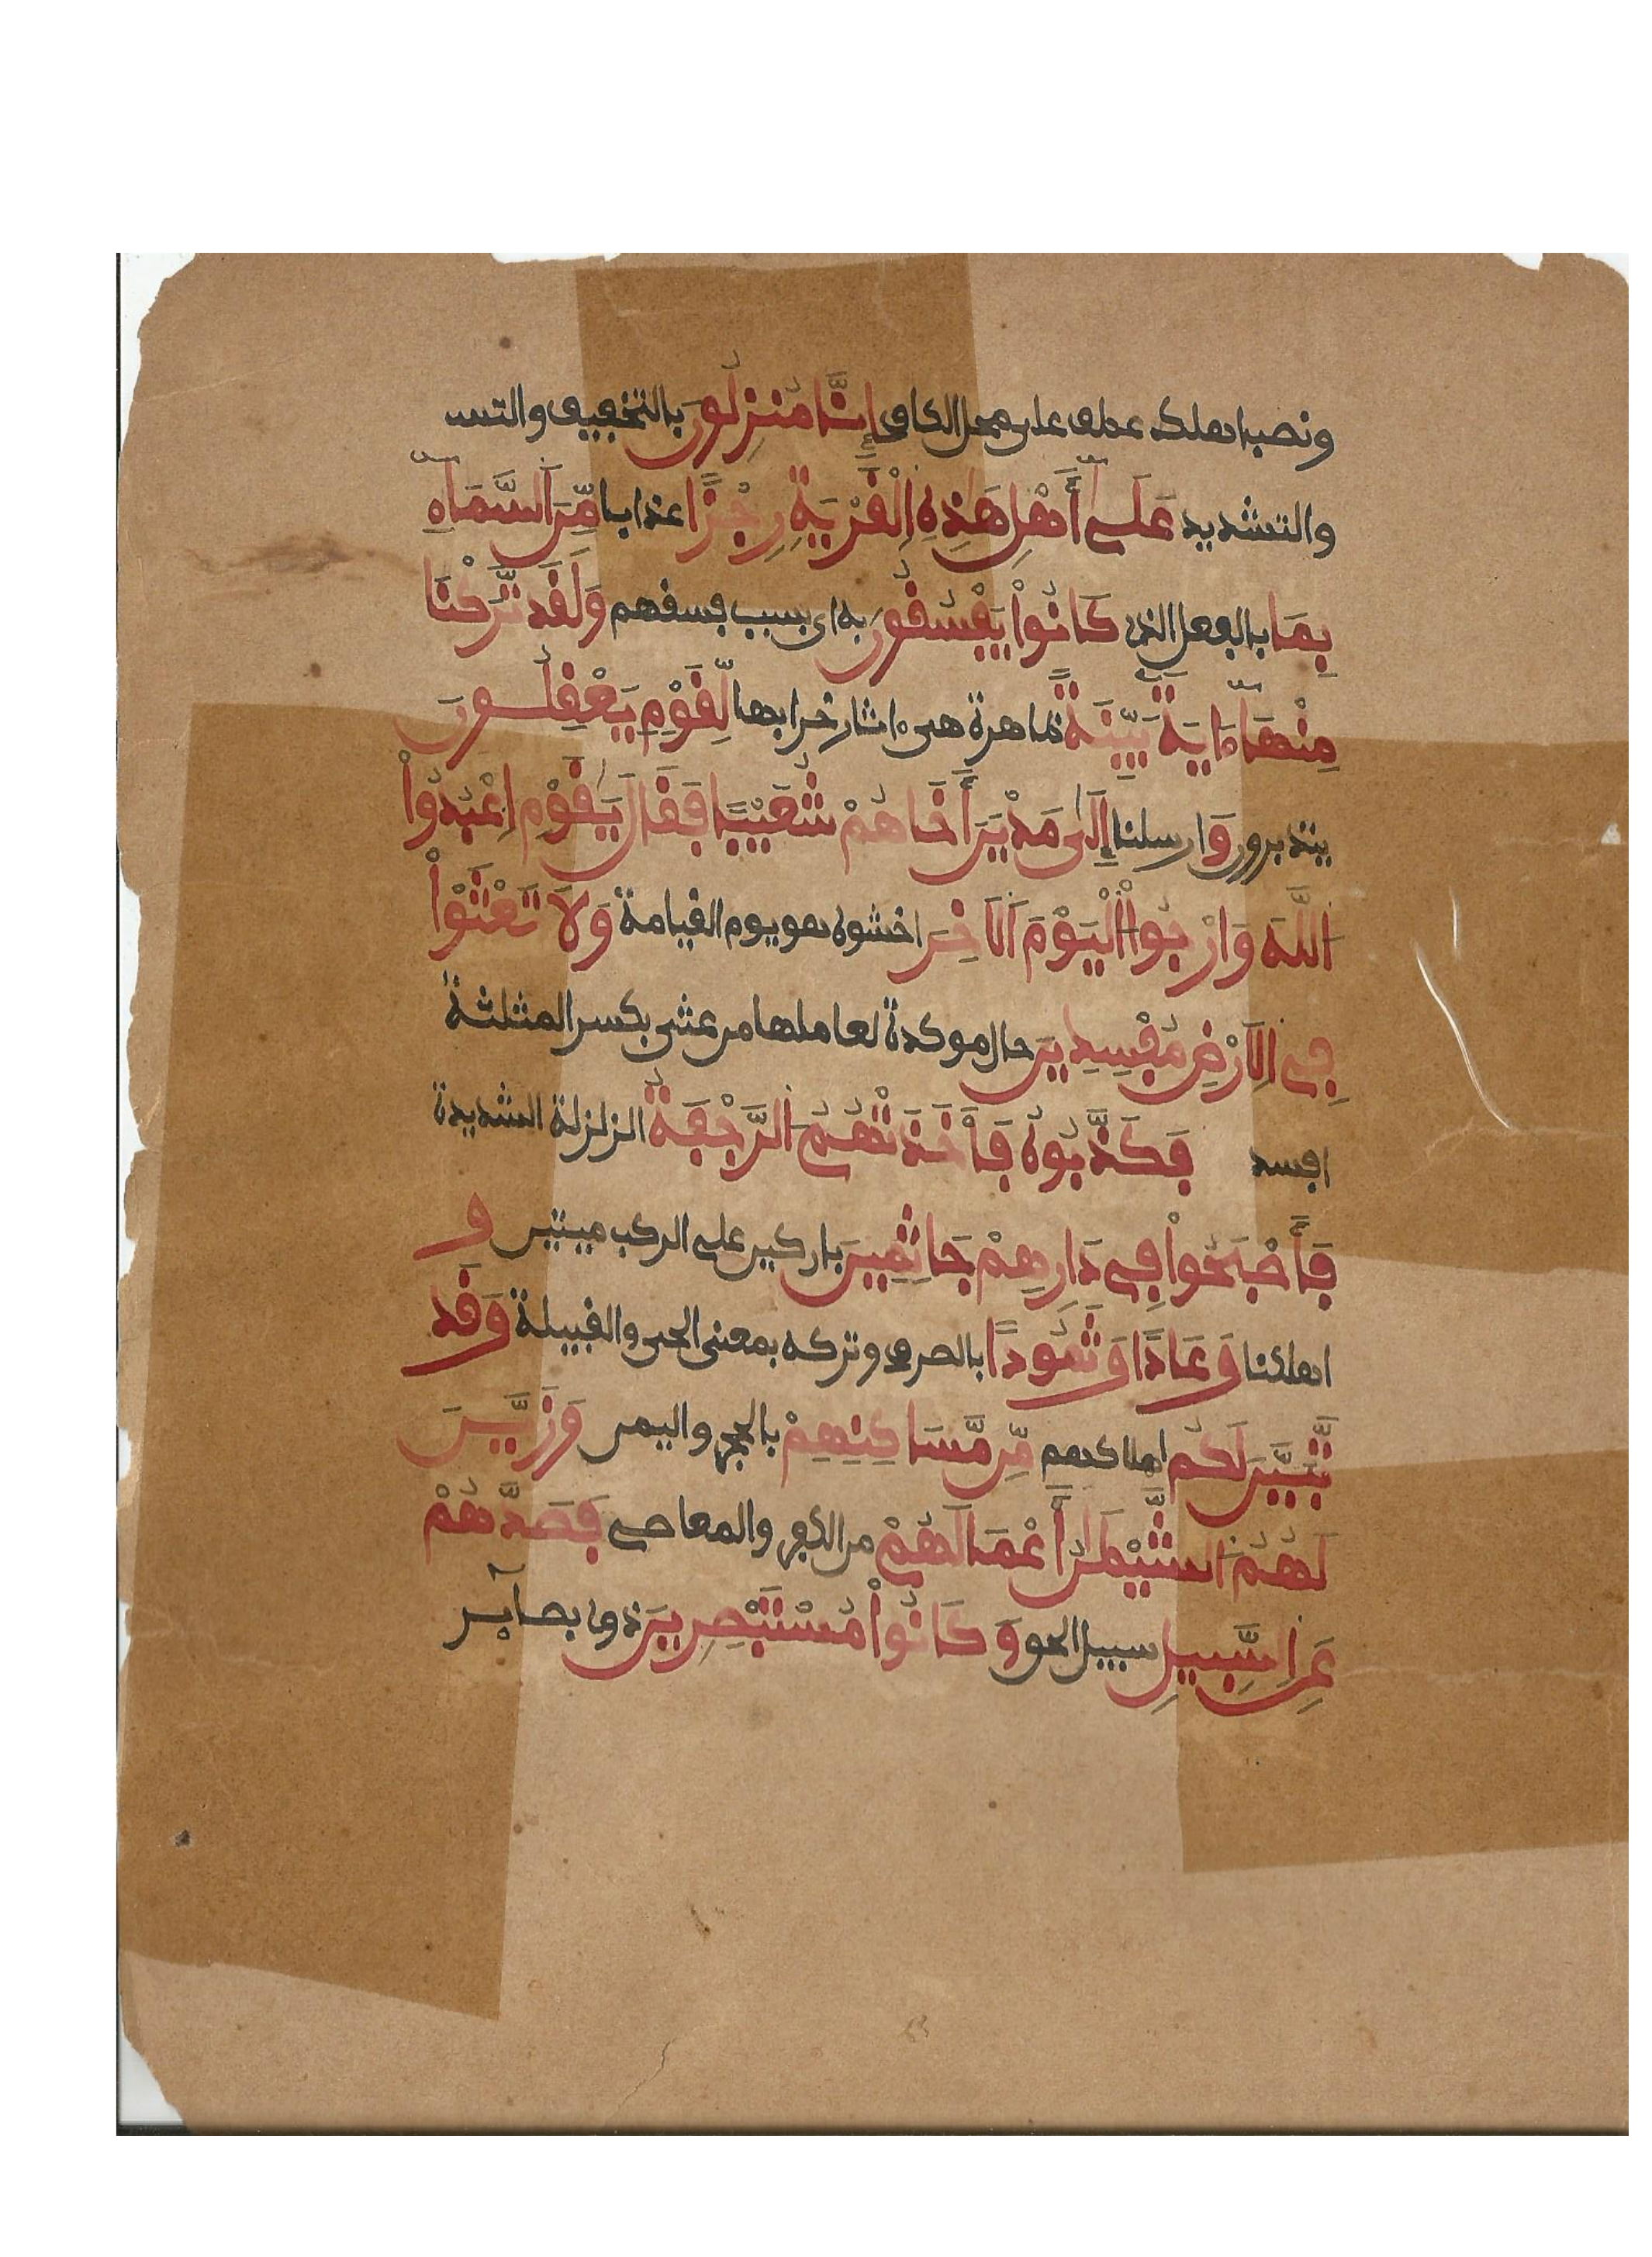 ونصب اهلك عطف على محل الكاف إِنَّا مُنزِلُونَ بالتخفيف والتسـ
والتشديد عَلَىٰ أَهْلِ هَٰذِهِ اِلْقَرْيَةِ رِجْزًا عذابا مِّنَ اَلسَّمَآءِ
بِمَا بالفعل الذي كَانُواْ يَفْسُقُونَ به اي بسبب فسقهم وَلَقَد تَّرَكْنَا
مِنْهَآ ءَايَةَۢ بَيِّنَةً ظاهرة هي ءاثار خرابها لِّقَوْمٍ يَعْقِلُونَ
يتدبرون وَارسلنا إِلَىٰ مَدْيَنَ أَخَاهُمْ شُعَيْبًا فَقَالَ يَٰقَوْمِ اِعْبُدُواْ
اُللَّهَ وَارْجُواْ اُلْيَوْمَ اَلَاخِرَ اخشوه هو يوم القيامة وَلَا تَعْثَوْاْ
فِي اِلَارْضِ مُفْسِدِينَ حال موكدة لعاملها من عثي بكسر المثلثة
افسد فَكَذَّبُوهُ فَأَخَذَتْهُمُ اُلرَّجْفَةُ الزلزلة الشديدة
فَأَصْبَحُواْ فِي دَارِهِمْ جَاثِمِينَ باركين على الركب ميتين و
اهلكنا وَعَادًا وَثَمُودًا بالصرف وتركه بمعنى الحي والقبيلة وَقَد
تَّبَيَّنَ لَكُم اهلاكهم مِّن مَّسَاكِنِهِمْ بالحجر واليمن وَزَيَّنَ
لَهُمُ اُلشَّيْطَٰنُ أَعْمَالَهُمْ من الكفر والمعاصي فَصَدَّهُمْ
عَنِ اِلسَّبِيلِ سبيل الحق وَكَانُواْ مُسْتَبْصِرِينَ ذوي بصآير